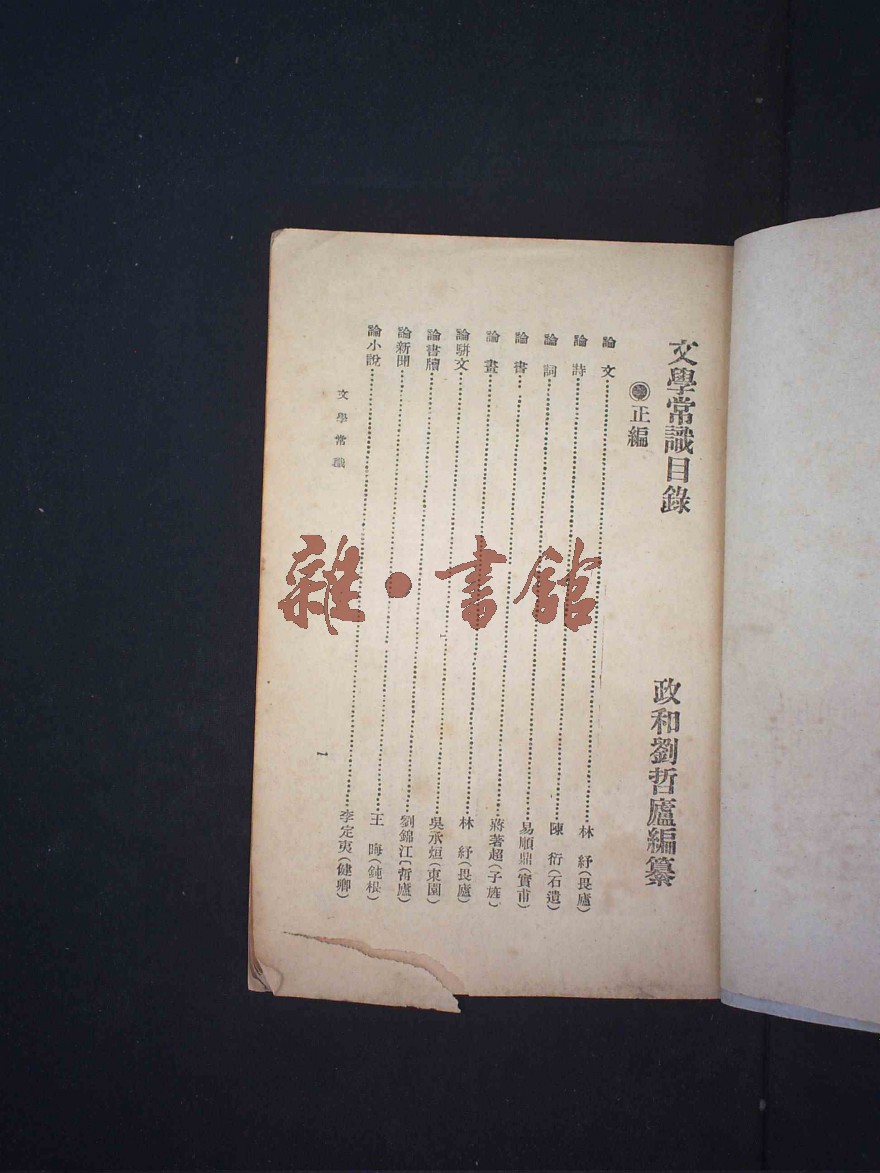 文學常識目錄
政和劉哲廬編纂
正編
論文 林紓(畏廬)
論詩 陳衍(石遺)
論詞 易順鼎(實甫)
論書 蔣著超(子旌)
論畫 林紓(畏廬)
論駢文 吳承烜(東園)
論書牘 劉錦江(哲廬)
論新聞 王晦(鈍根)
論小說 李定夷(健卿)
文學常識
一
雜・書館